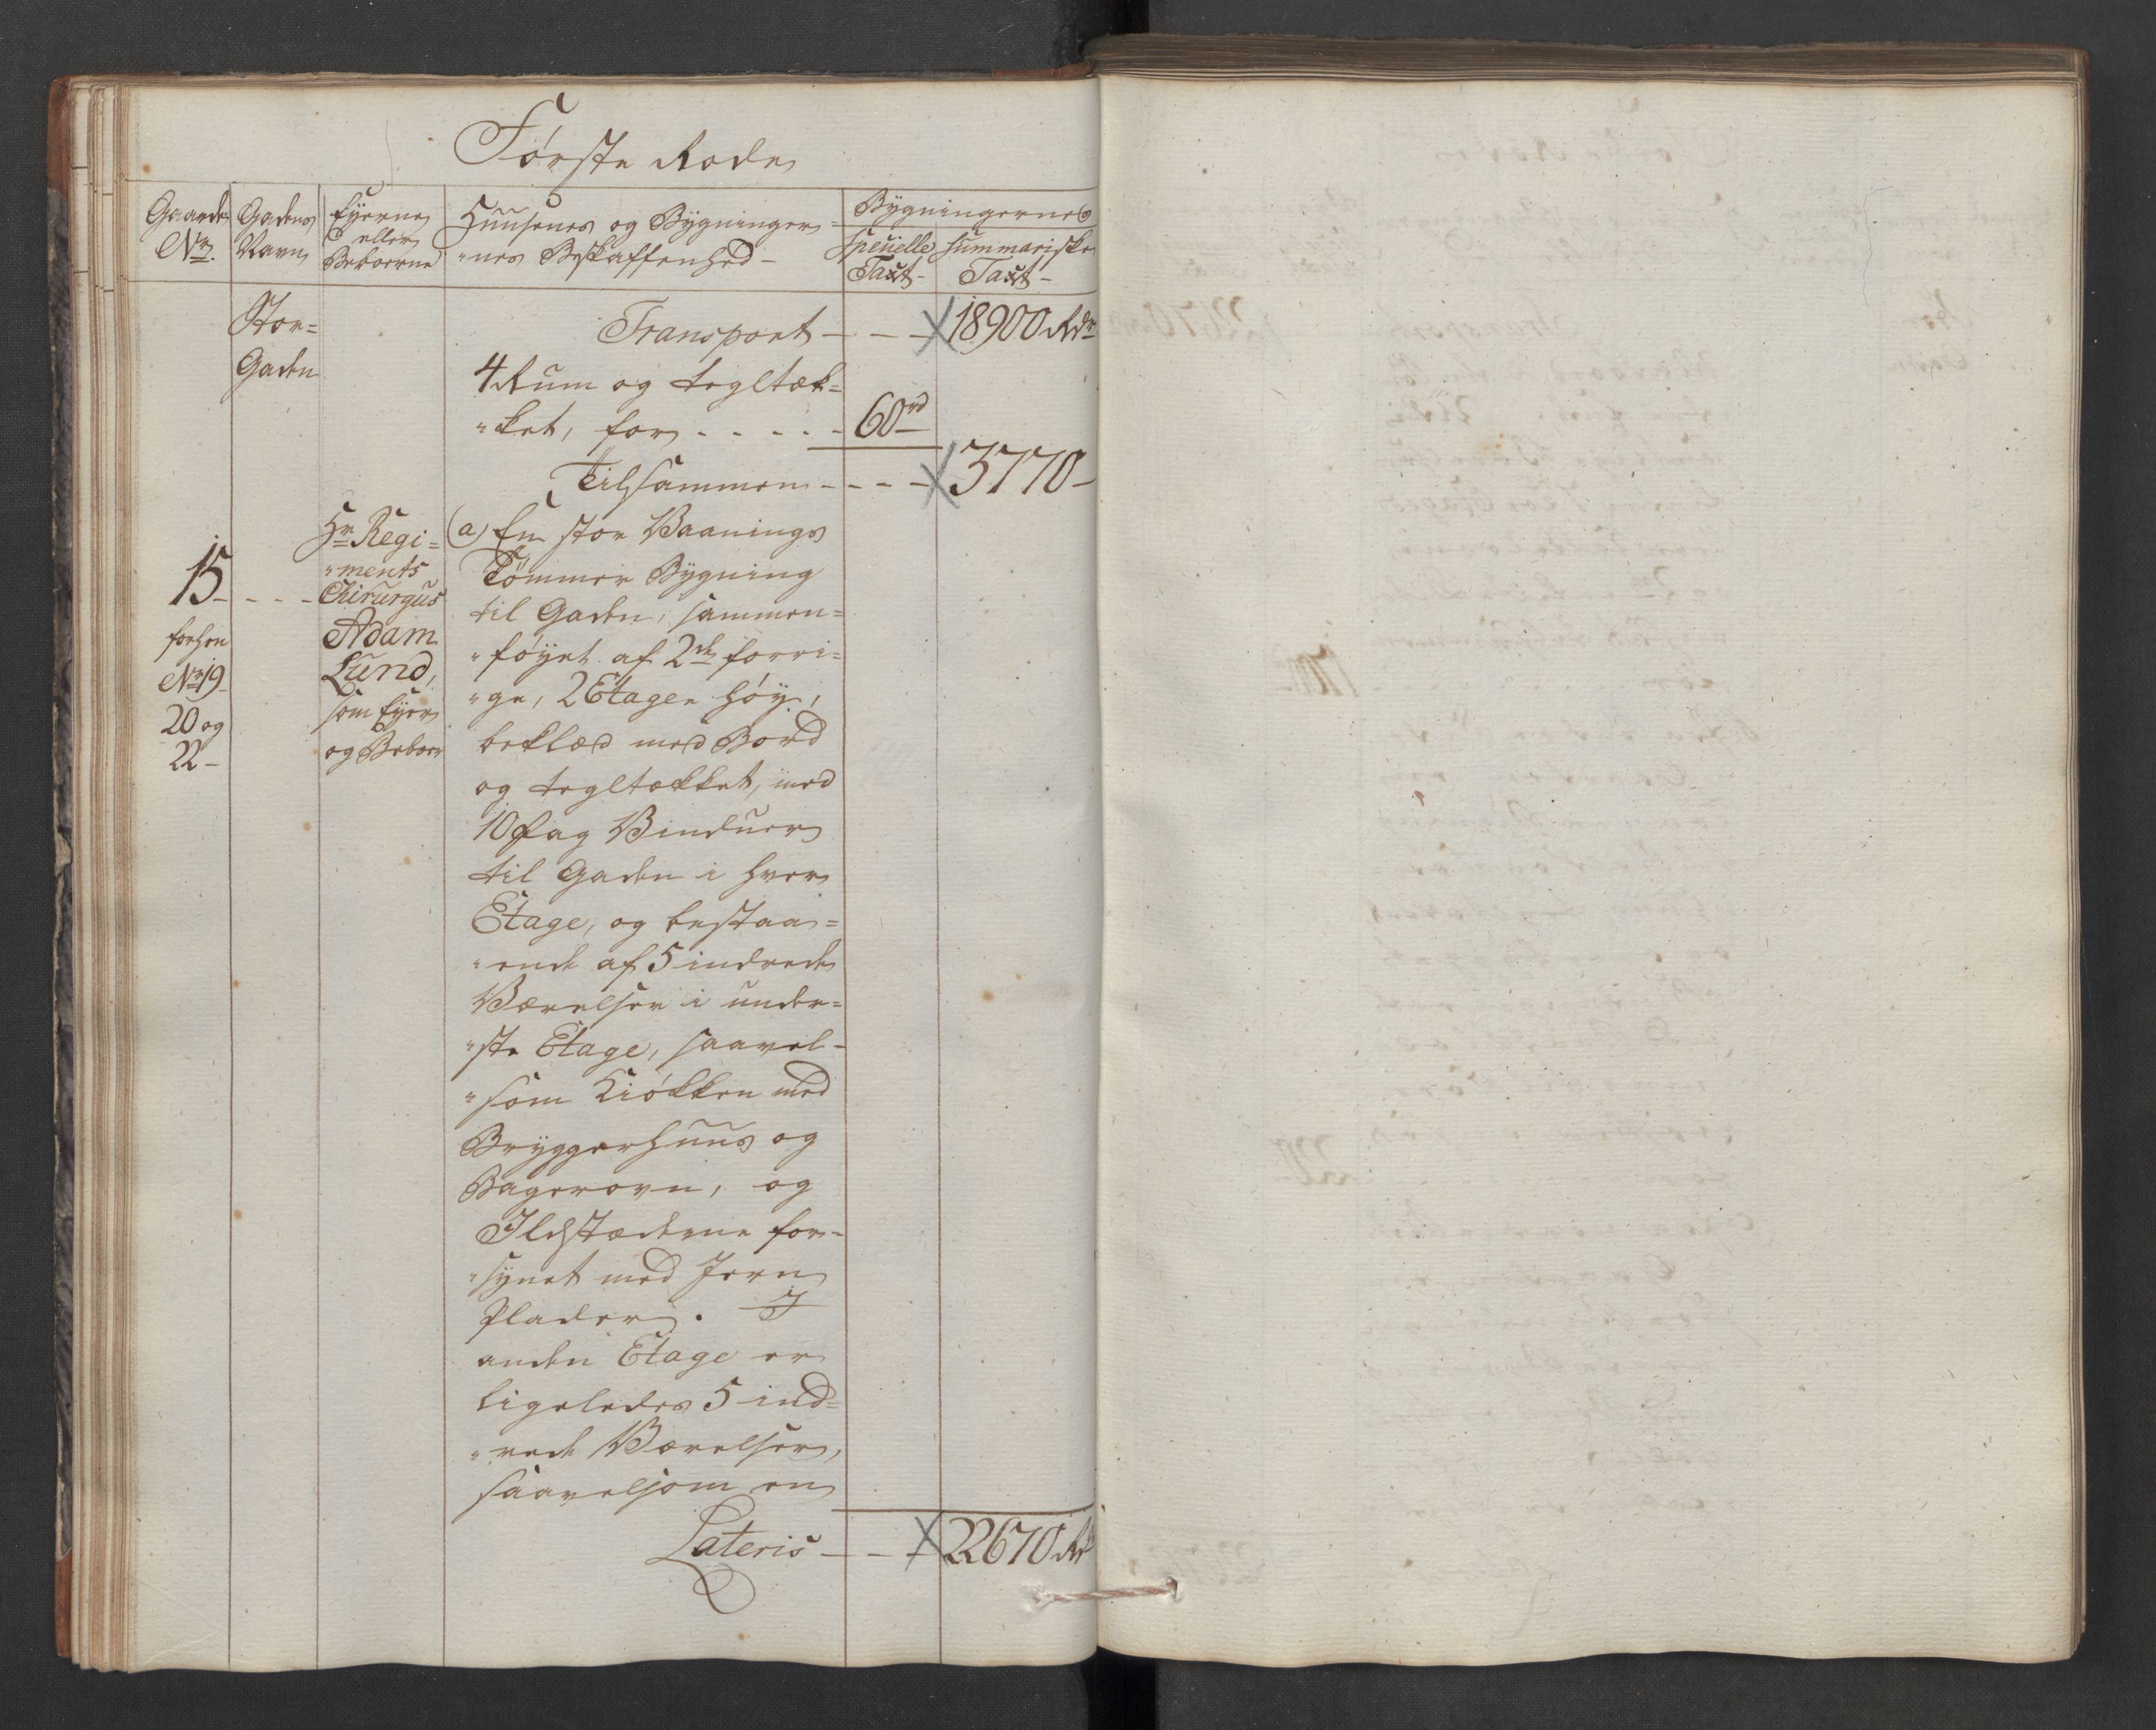 Første Rode
Gaards Nr.
Gadens Navn
Eyerne eller Beboerne
Huusenes og Bygninger=
"nes Beskaffenhed -
Bygningernes
speciele Taxt -
summariske Taxt -
Stor=
Gaden
Transport - - - 18900 Rdr
4 Rum og tegltæk=
"ket, for - - - - - 60 rd
Tilsammen - - - - 3770 -
15 - - - -
forhen
Nr 19
20 og
22 -
Hr Regi=
"ments
Chirurgus
Adam
Lund,
som Eyer
og Beboer
(a) En stor Vaanings
Tømmer Bygning
til Gaden, sammen=
"føyet af 2de forri=
"ge, 2 Etager høy,
beklæd med Bord
og tegltækket, med
10 Fag Vinduer
til Gaden i hver
Etage, og bestaa=
"ende af 5 indrede
Værelser i under=
"ste Etage, saavel=
"som Kiøkken med
Bryggerhuus og
Bagerovn, og
Ildstæderne for=
"synet med Jern
Plader. I
anden Etage er
ligeledes 5 ind=
"rede Værelser,
saavelsom en
Lateris - - - 22670 Rd